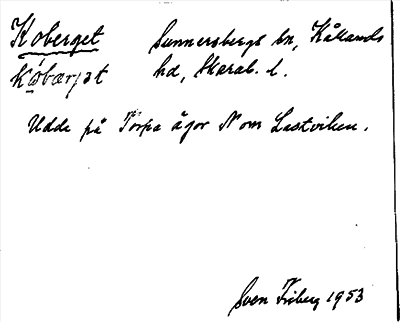 Koberget Sunnersbergs sn, Kållands
kǿbærjət hd, Skarab. l.
Udde på Torpa ägor N om Lastviken.
Sven Friberg 1953